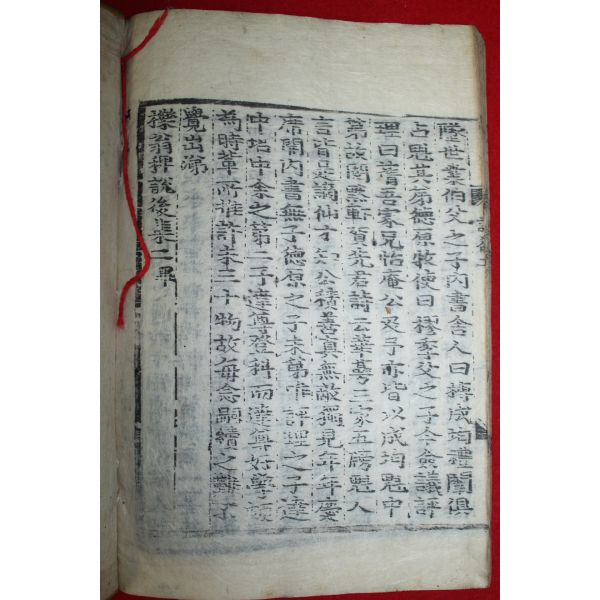 墜世業伯父之子內書舍人曰蒨成均禮闈俱
占魁其弟德原牧使曰樛季父之子今僉議評
理曰蒨吾家兄怡庵公及予亦皆以成均魁中
第故閤黙軒賀先君詩云華萼二家五牓魁人
言皆是謫仙才公積善真無敵得見年年慶
席開內書無子德原之子未第唯評理之子達
中 中余之第二子達尊登科而達尊好學
為時輩所推前未三十物故每念嗣續之難予
覺出涕
櫟翁稗說後集二畢